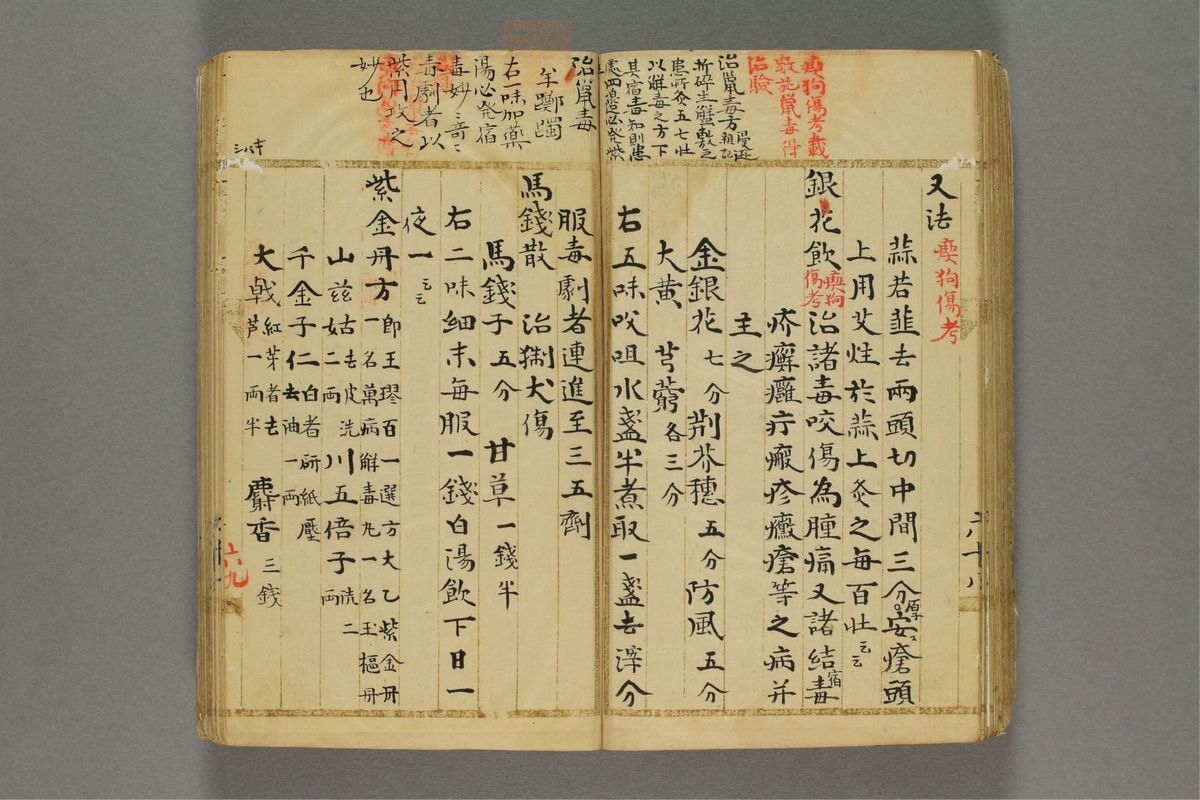 瘈狗傷考載
鼠毒得
治驗
治鼠毒方
折碎生蟹敷之
患所灸五七壯
以解毒之方下
其宿毒知則患
又法 瘈狗傷考
蒜若韮去兩頭切中間三分安瘡頭
上用艾炷於蒜上灸之每百壯云云
銀花飲 瘈狗傷考 治諸毒咬傷為腫痛又諸結毒
疥癬癰疔瘢疹癜瘡等之病并
主之
金銀花七分 荆芥穗五分 防風五分
大黄 芎藭各三分
右五味㕮咀水盞半煮取一盞去滓分
六十八
治鼠毒
羊躑躅
右一味加藥
湯必発宿
毒妙々奇々
毒劇者以
紫円攻之
妙也
服毒劇者連進至三五劑
馬錢散 治猘犬傷
馬錢子五分 甘草一錢半
右二味細末毎服一錢白湯飲下日一
夜一云云
紫金丹方 一名萬病解毒丸一名玉樞丹 即王璆百一選方太乙紫金丹
山茲姑去皮洗二両 川五倍子洗二両
千金子仁白者研紙壓去油一両
大戟紅芽者去芦一両半 麝香三錢
六九